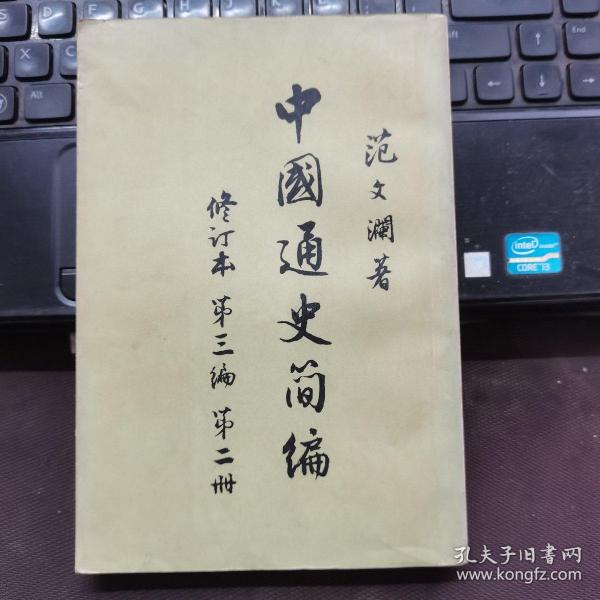 范文瀾著
中國通史简编
修订本 第三编 第二册
Ctrl
Alt
Shift
Ctrl
End
intel
inside
CORE i3
孔夫子旧书网
www.kongfz.com